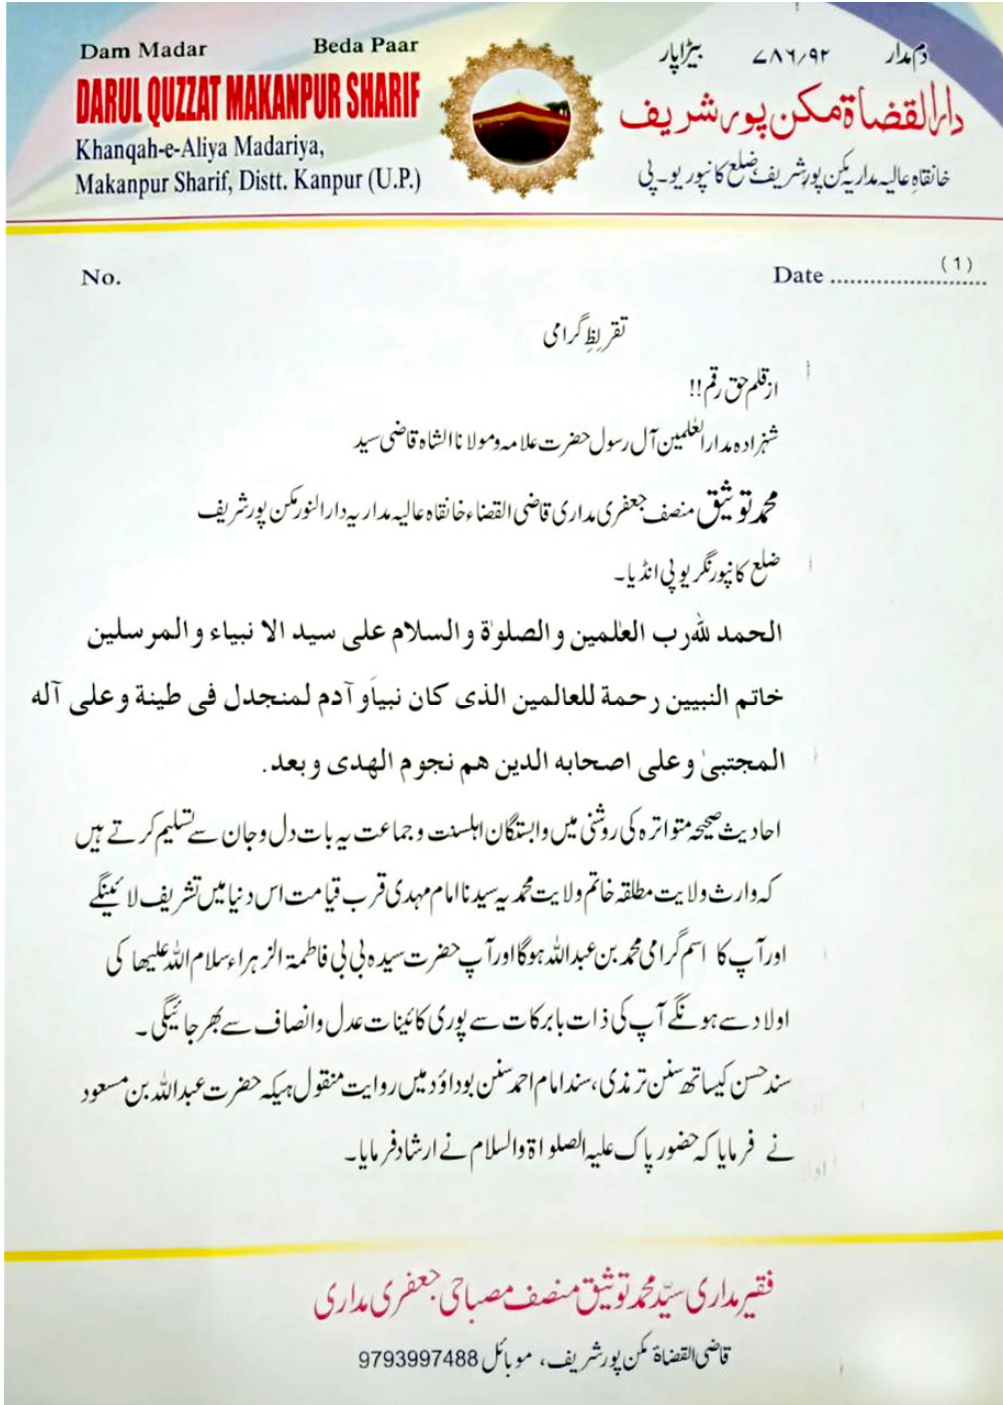 Dam Madar Beda Paar
DARUL QUZZAT MAKANPUR SHARIF
Khanqah-e-Aliya Madariya,
Makanpur Sharif, Distt. Kanpur (U.P.)
دم مدار ۷۸۶/۹۲ بیڑاپار
دارالقضاة مکن پور شریف
خانقاہِ عالیہ مداریہ مکن پور شریف ضلع کانپور یو۔پی
No.
Date ........................ (1)
تقریظِ گرامی
از قلم حق رقم!!
شہزادہ مدارالعٰلمین آل رسول حضرت علامہ ومولانا الشاہ قاضی سید
محمد توثیق منصف جعفری مداری قاضی القضاء خانقاہ عالیہ مداریہ دارالنور مکن پور شریف
ضلع کانپور نگر یو پی انڈیا۔
الحمد للہ رب العٰلمین والصلوٰة والسلام علی سید الا نبیاء والمرسلین
خاتم النبیین رحمة للعالمین الذی کان نبیاَو آدم لمنجدل فی طینة وعلی آله
المجتبیٰ وعلی اصحابه الدین هم نجوم الهدی وبعد.
احادیث صحیحہ متواترہ کی روشنی میں وابستگان اہلسنت وجماعت یہ بات دل وجان سے تسلیم کرتے ہیں
کہ وارث ولایت مطلقہ خاتم ولایت محمدیہ سیدنا امام مہدی قرب قیامت اس دنیا میں تشریف لائینگے
اور آپ کا اسم گرامی محمد بن عبداللہ ہوگا اور آپ حضرت سیدہ بی بی فاطمۃ الزہراء سلام اللہ علیھا کی
اولاد سے ہونگے آپ کی ذات بابرکات سے پوری کائینات عدل وانصاف سے بھر جائیگی۔
سند حسن کیساتھ سنن ترمذی، سند امام احمد سنن بوداؤد میں روایت منقول ہیکہ حضرت عبداللہ بن مسعود
نے فرمایا کہ حضور پاک علیہ الصلواة والسلام نے ارشاد فرمایا۔
فقیر مداری سیّد محمد توثیق منصف مصباحی جعفری مداری
قاضی القضاة مکن پور شریف، موبائل 9793997488